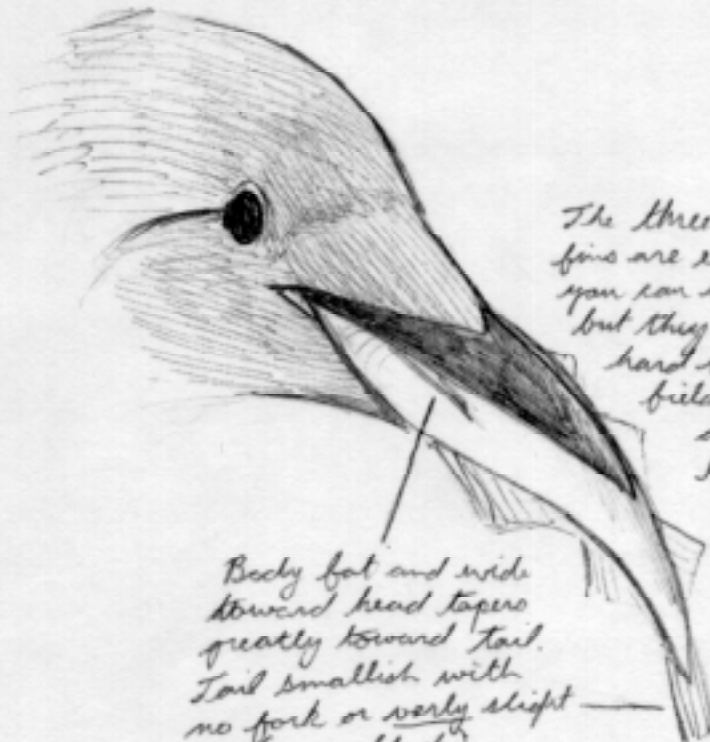 The
fins are
you can
but they
hard
field
Body fat and wide
toward head tapers
greatly toward tail.
Tail smallish with
no fork or verly slight